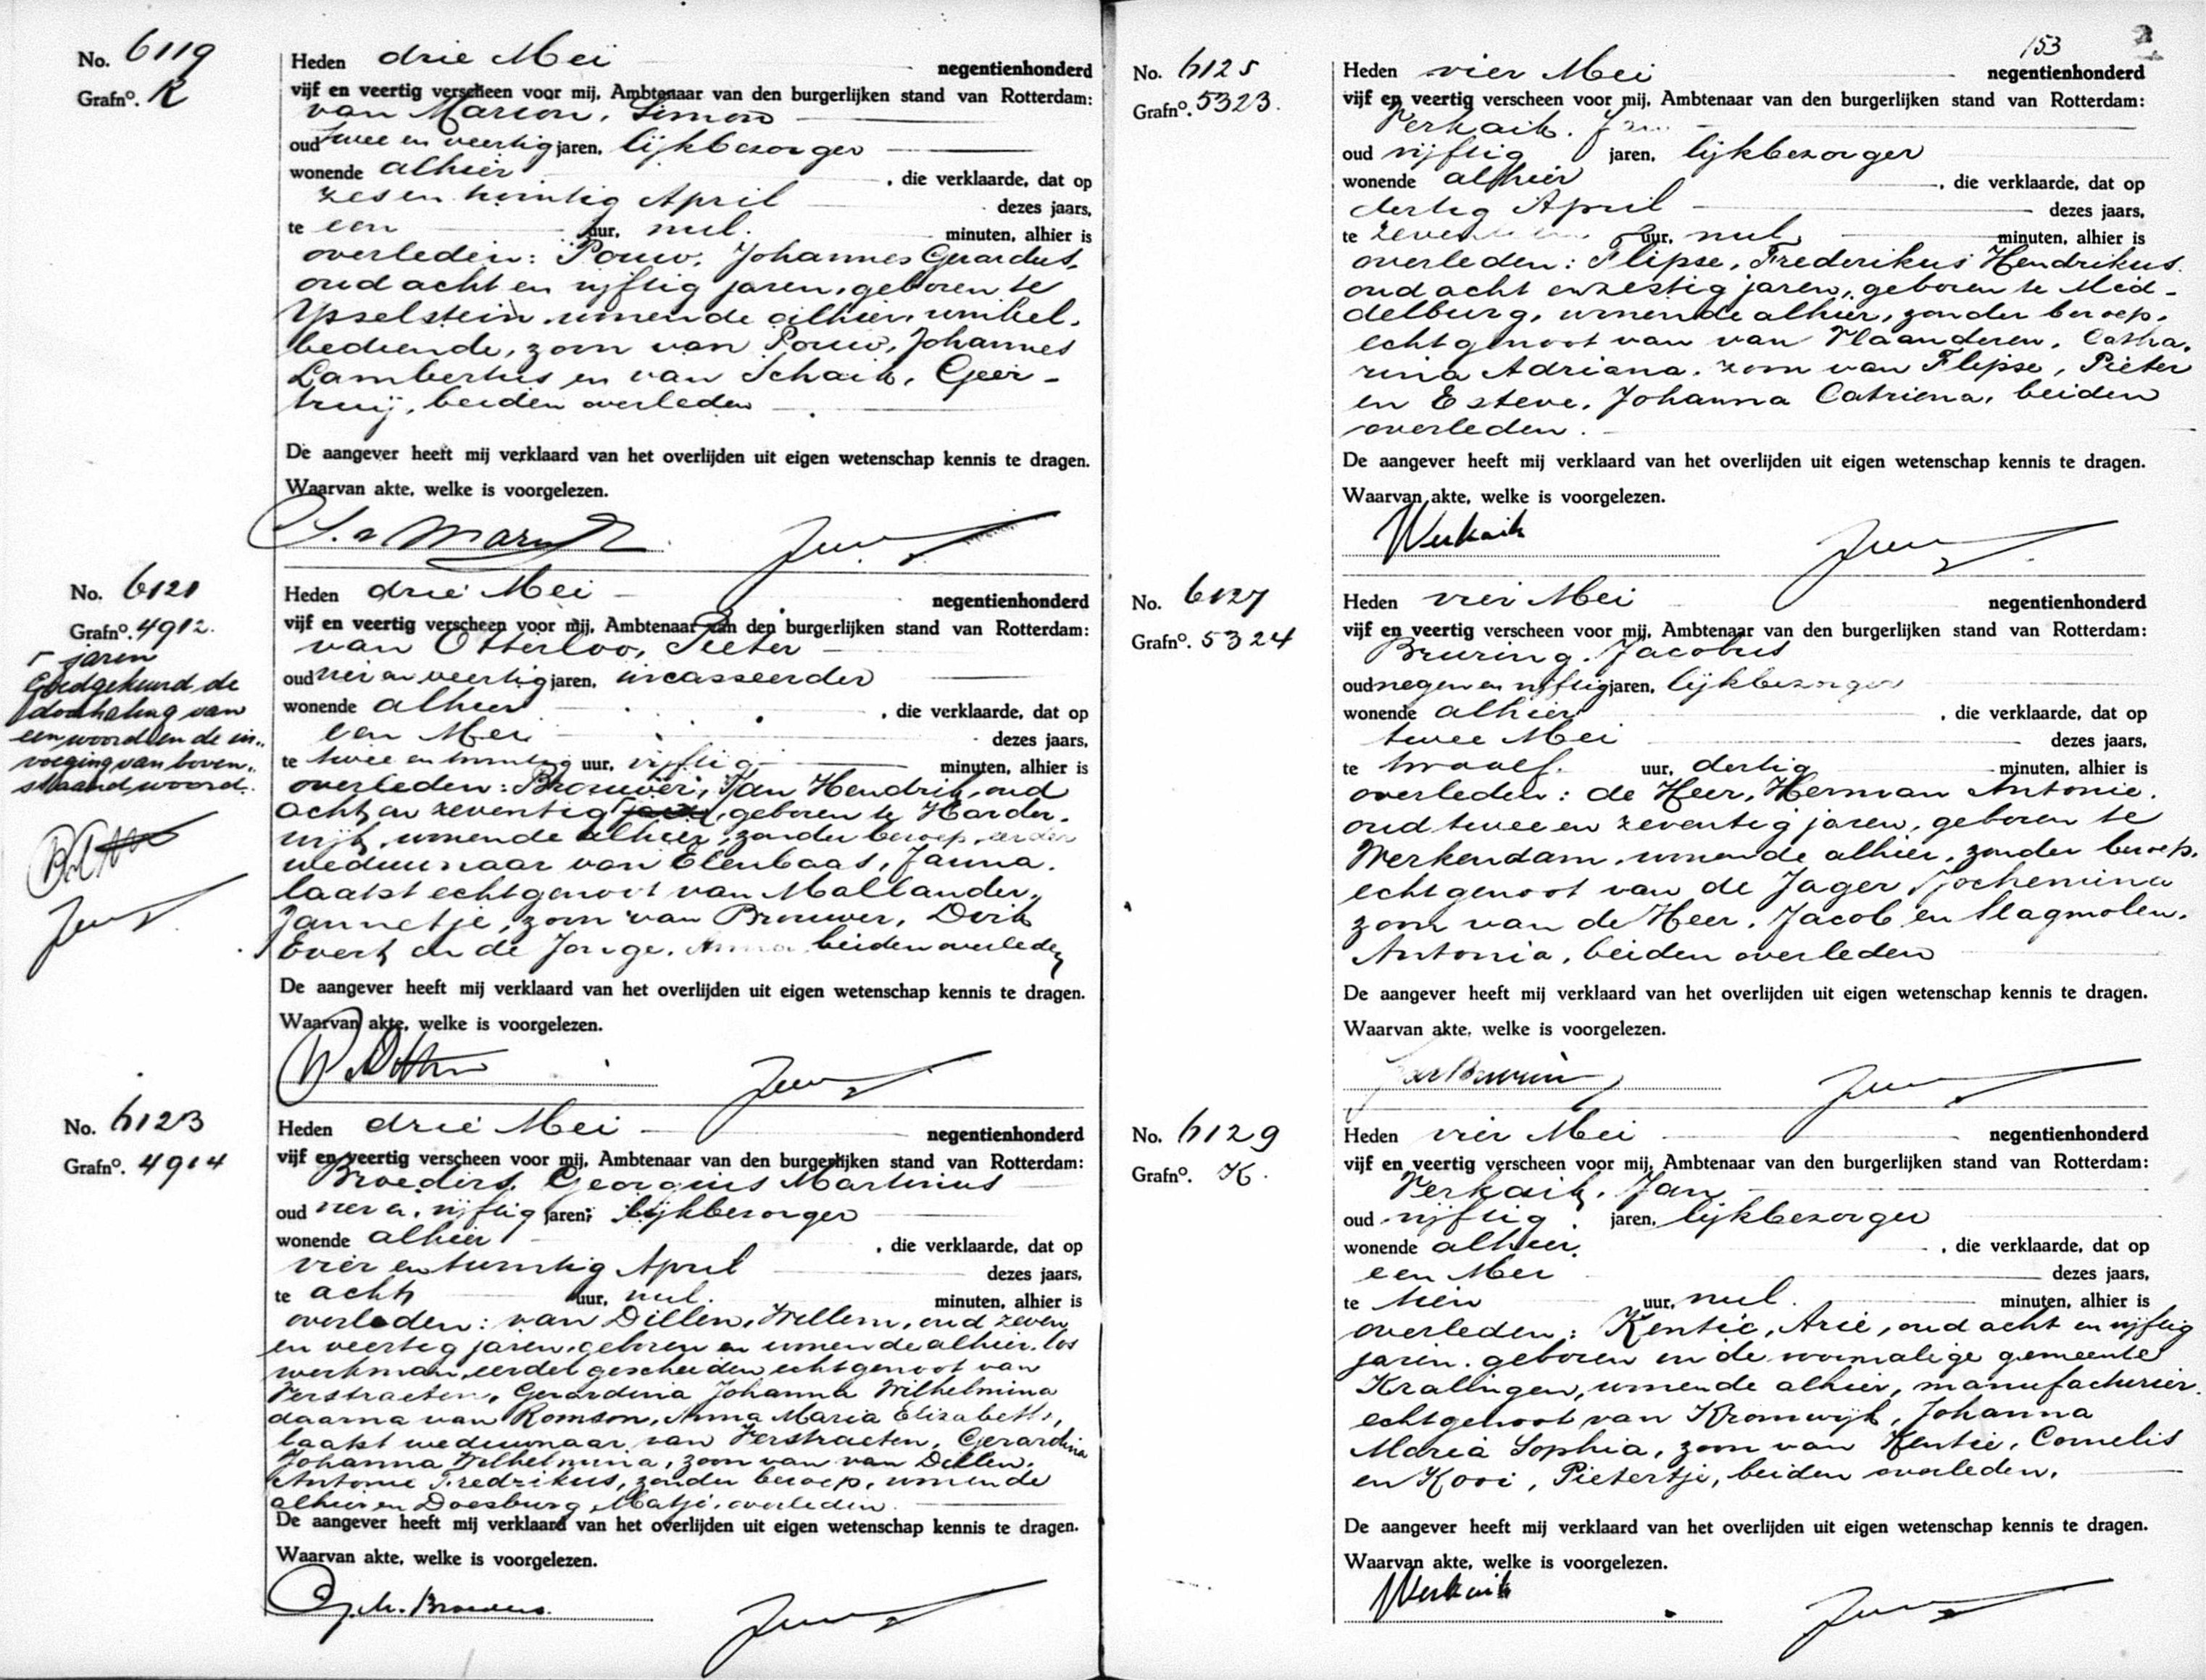 No. 6119
Grafno. K
Heden drie Mei negentienhonderd
vijf en veertig verscheen voor mij, Ambtenaar van den burgerlijken stand van Rotterdam:
van Marion, Simon
oud twee en veertig jaren, lijkbezorger
wonende alhier, die verklaarde, dat op
zes en twintig April dezes jaars,
te een uur, nul. minuten, alhier is
overleden: Pouw, Johannes Gerardus,
oud acht en vijftig jaren, geboren te
Ysselstein, wonende alhier, winkel-
bediende, zoon van Pouw, Johannes
Lambertus en van Schaik, Geer-
truij, beiden overleden
De aangever heeft mij verklaard van het overlijden uit eigen wetenschap kennis te dragen.
Waarvan akte, welke is voorgelezen.
No. 6121
Grafno. 4912.
jaren
Goedgekeurd de
doorhaling van
een woord en de in-
voeging van boven-
staand woord.
Heden drie Mei negentienhonderd
vijf en veertig verscheen voor mij, Ambtenaar van den burgerlijken stand van Rotterdam:
van Otterloo, Pieter
oud vier en veertig jaren, incasseerder
wonende alhier, die verklaarde, dat op
een Mei dezes jaars,
te twee en twintig uur, vijftig minuten, alhier is
overleden: Brouwer, Jan Hendrik, oud
acht en zeventig jaar, geboren te Harder-
wijk, wonende alhier, zonder beroep, eerder
weduwnaar van Elenbaas, Janna,
laatst echtgenoot van Mallander,
Jannetje, zoon van Brouwer, Dirk
Evert en de Jonge, Anna beiden overleden
De aangever heeft mij verklaard van het overlijden uit eigen wetenschap kennis te dragen.
Waarvan akte, welke is voorgelezen.
No. 6123
Grafno. 4914
Heden drie Mei negentienhonderd
vijf en veertig verscheen voor mij, Ambtenaar van den burgerlijken stand van Rotterdam:
Broeders, Georgius Martinus
oud vier en vijftig jaren, lijkbezorger
wonende alhier, die verklaarde, dat op
vier en twintig April dezes jaars,
te acht uur, nul. minuten, alhier is
overleden: van Dillen, Willem, oud zeven
en veertig jaren, geboren en wonende alhier, los
werkman, eerder gescheiden echtgenoot van
Verstraeten, Gerardina Johanna Wilhelmina
daarna van Romson, Anna Maria Elizabeth,
laatst weduwnaar van Verstraeten, Gerardina
Johanna Wilhelmina, zoon van van Dillen,
Antonie Fredrikus, zonder beroep, wonende
alhier en Doesburg, Matje, overleden.
De aangever heeft mij verklaard van het overlijden uit eigen wetenschap kennis te dragen.
Waarvan akte, welke is voorgelezen.
G. M. Broeders.
153
No. 6125
Grafno. 5323.
Heden vier Mei negentienhonderd
vijf en veertig verscheen voor mij, Ambtenaar van den burgerlijken stand van Rotterdam:
Verkaik, Jan
oud vijftig jaren, lijkbezorger
wonende alhier, die verklaarde, dat op
dertig April dezes jaars,
te zeven uur, nul minuten, alhier is
overleden: Flipse, Frederikus Hendrikus,
oud acht en zestig jaren, geboren te Mid-
delburg, wonende alhier, zonder beroep,
echtgenoot van van Vlaanderen, Catha-
rina Adriana, zoon van Flipse, Pieter
en Esteve, Johanna Catriena, beiden
overleden.
De aangever heeft mij verklaard van het overlijden uit eigen wetenschap kennis te dragen.
Waarvan akte, welke is voorgelezen.
No. 6127
Grafno. 5324
Heden vier Mei negentienhonderd
vijf en veertig verscheen voor mij, Ambtenaar van den burgerlijken stand van Rotterdam:
Bruring, Jacobus
oud negen en vijftig jaren, lijkbezorger
wonende alhier, die verklaarde, dat op
twee Mei dezes jaars,
te twaalf uur, dertig minuten, alhier is
overleden: de Heer, Herman Antonie,
oud twee en zeventig jaren, geboren te
Werkendam, wonende alhier, zonder beroep,
echtgenoot van de Jager, Jochemina
zoon van de Heer, Jacob en Slagmolen,
Antonia, beiden overleden
De aangever heeft mij verklaard van het overlijden uit eigen wetenschap kennis te dragen.
Waarvan akte, welke is voorgelezen.
No. 6129
Grafno. K.
Heden vier Mei negentienhonderd
vijf en veertig verscheen voor mij, Ambtenaar van den burgerlijken stand van Rotterdam:
Verkaik, Jan
oud vijftig jaren, lijkbezorger
wonende alhier, die verklaarde, dat op
een Mei dezes jaars,
te tien uur, nul. minuten, alhier is
overleden: Kentie, Arie, oud acht en vijftig
jaren, geboren in de voormalige gemeente
Kralingen, wonende alhier, manufacturier,
echtgenoot van Kromwijk, Johanna
Maria Sophia, zoon van Kentie, Cornelis
en Kooi, Pietertje, beiden overleden.
De aangever heeft mij verklaard van het overlijden uit eigen wetenschap kennis te dragen.
Waarvan akte, welke is voorgelezen.